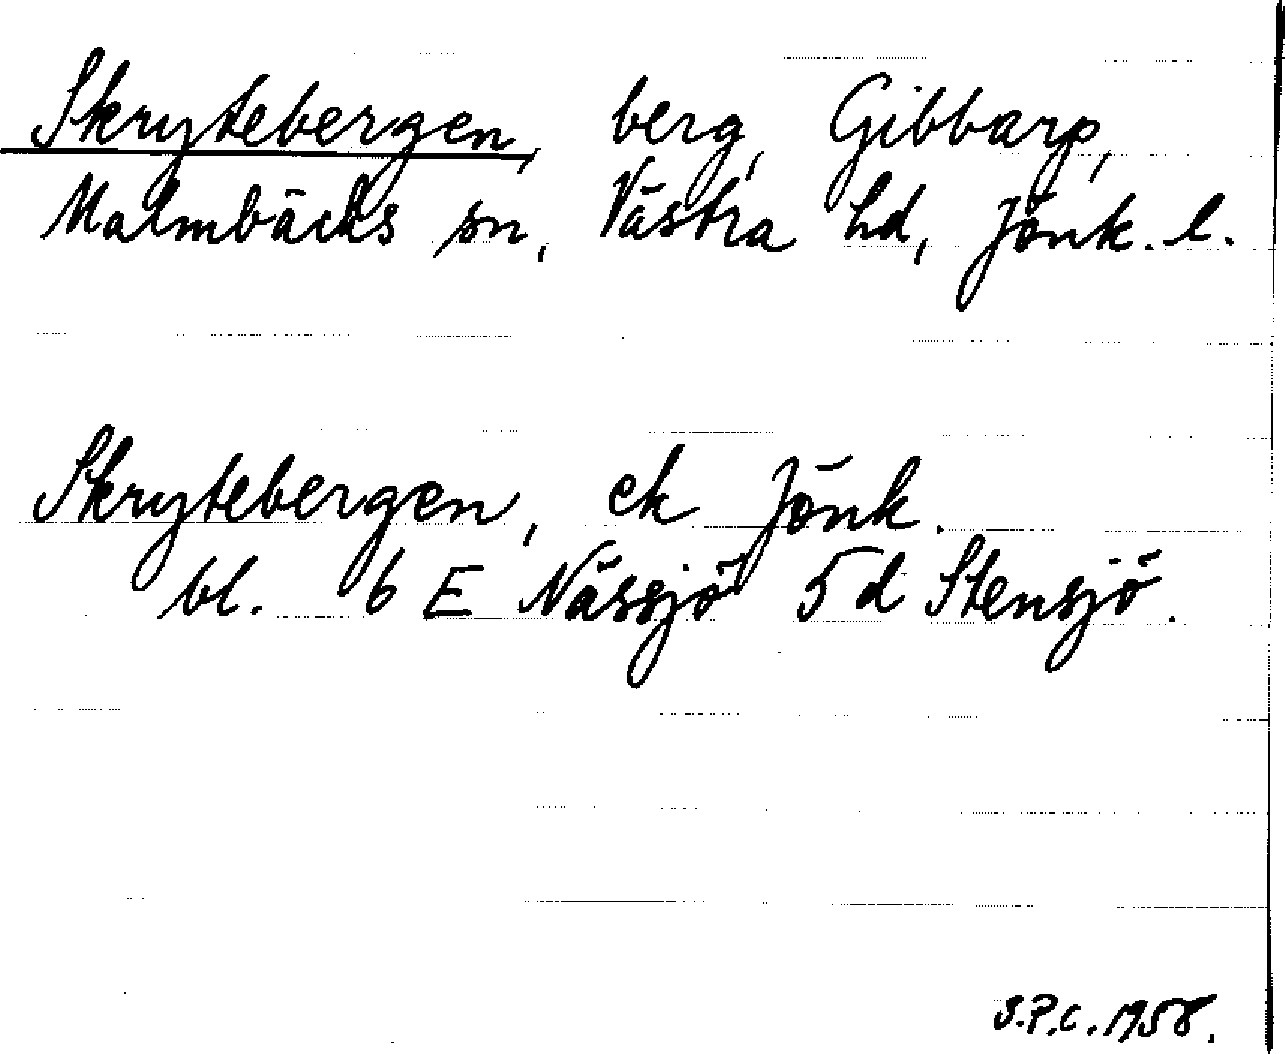 Skrytebergen, berg, Gibbarp,
Malmbäcks sn, Västra hd, Jönk. l.
Skrytebergen, ek Jönk.
bl. 6 E Nässjö 5d Stensjö.
S.P.C. 1958.